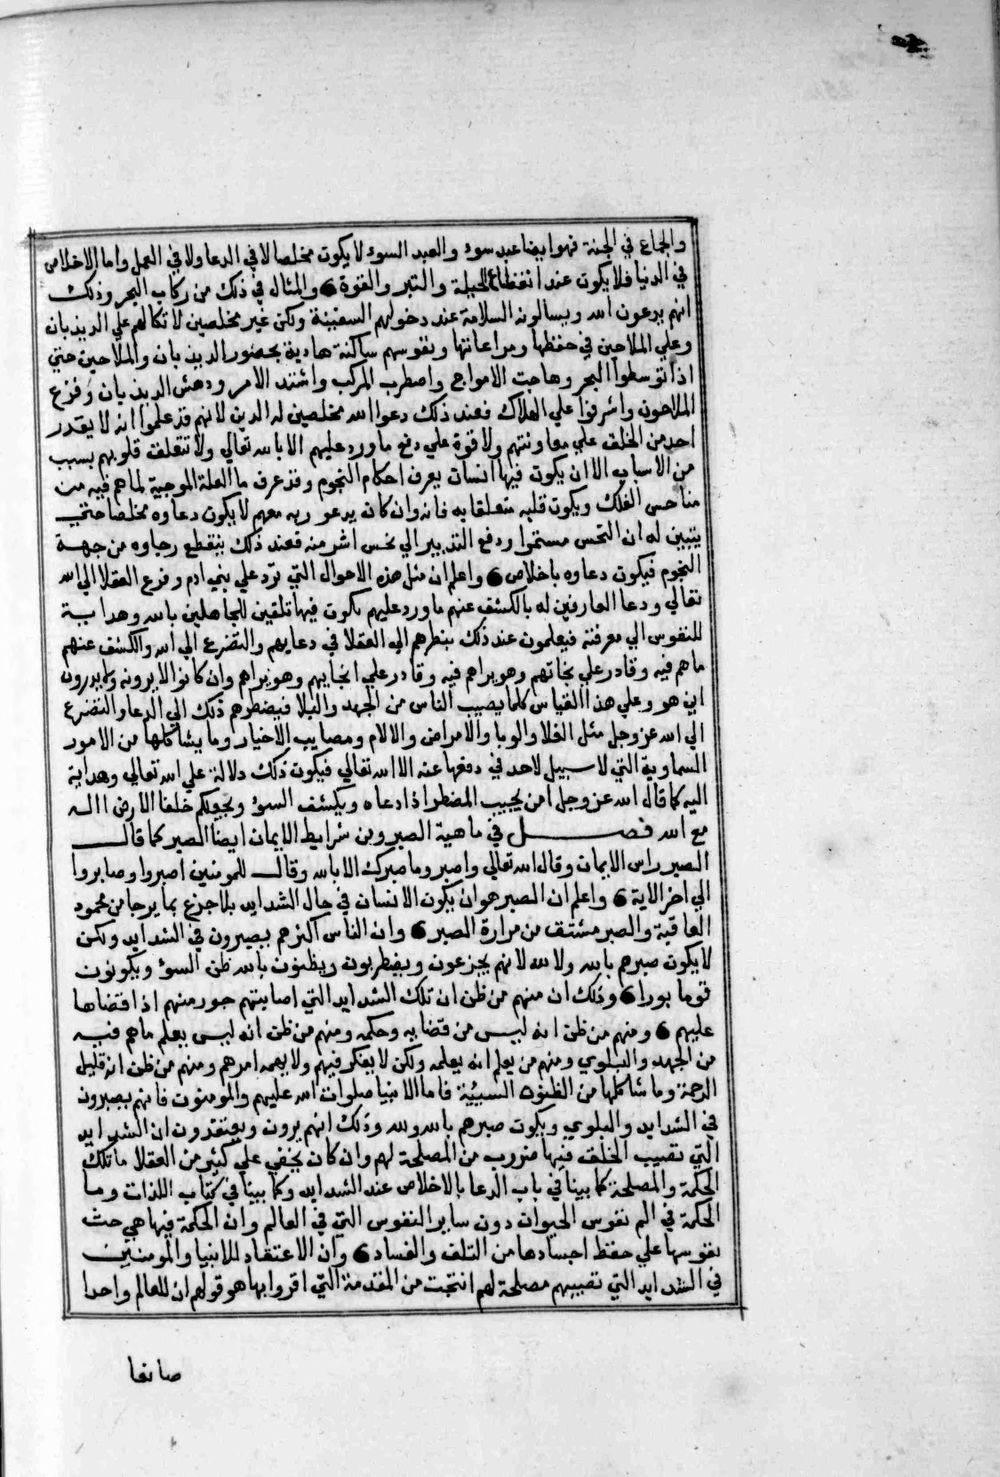 والجماع في الجنة فهو ايضا عبد سوء والعبد السوء لا يكون مخلصا لا في الدعا ولا في العمل واما الاخلاص
في الدنيا فلا يكون عند انقطاع الحيلة والتبر والقوة 6 والمثال في ذلك من ركاب البحر وذلك
انهم يدعون الله ويسالونه السلامة عند دخولهم السفينة ولكن غير مخلصين لاتكالهم علي الديذبان
وعلي الملاحين في حفظها ومراعاتها ونفوسهم ساكنة هادية بحضور الديذبان والملاحين حتي
اذا توسطوا البحر وهاجت الامواج واضطرب المركب واشتد الامر ودهش الديذبان وفزع
الملاحون واشرفوا علي الهلاك فعند ذلك دعوا الله مخلصين له الدين لانهم قد علموا انه لا يقدر
احد من الخلق علي معاونتهم ولا قوة علي دفع ما ورد عليهم الا بالله تعالي ولا تتعلق قلوبهم بسبب
من الاسباب الا ان يكون فيها انسان يعرف احكام النجوم وقد عرف ما العلة الموجبة لما هم فيه من
مناحس الفلك ويكون قلبه متعلقا به فانه وان كان يدعو ربه معهم لا يكون دعاوه مخلصا حتي
يتبين له ان النحس مستمرا ودفع التدبير الي نحس اشر منه فعند ذلك ينقطع رجاوه من جهة
النجوم فيكون دعاوه باخلاص 6 واعلم ان مثل هذه الاحوال التي ترد علي بني ادم وفزع العقلا الي الله
تعالي ودعا العارفين له بالكشف عنهم ما ورد عليهم يكون فيها تلقين للجاهلين بالله وهداية
للنفوس الي معرفته فيعلمون عند ذلك بنظرهم الي العقلا في دعايهم والتضرع الي الله والكشف عنهم
ما هم فيه وقادر علي نجاتهم وهو يراهم فيه وقادر علي انجايهم وهو يراهم وان كانوا لا يرونه ولا يدرون
اين هو وعلي هذا القياس كلما يصيب الناس من الجهد والبلا فيضطرهم ذلك الي الدعا والتضرع
الي الله عز وجل مثل الغلا والوبا والامراض والالام ومصايب الاخيار وما يشاكلها من الامور
السماوية التي لا سبيل لاحد في دفعها عنه الا الله تعالي فيكون ذلك دلالة علي الله تعالي وهداية
اليه كما قال الله عز وجل امن يجيب المضطر اذا دعاه ويكشف السوء ويجعلكم خلفا الارض االه
مع الله فصل في ماهية الصبر ومن شرايط الايمان ايضا الصبر كما قال
الصبر راس الايمان وقال الله تعالي واصبر وما صبرك الا بالله وقال للمومنين اصبروا وصابروا
الي اخر الاية 6 واعلم ان الصبر هو ان يكون الانسان في حال الشدايد بلا جزع بما يرجا من محمود
العاقبة والصبر مشتق من مرارة الصبر 6 وان الناس اكثرهم يصبرون في الشدايد ولكن
لا يكون صبرهم بالله ولا لله لانهم يجزعون ويضطربون ويظنون بالله ظن السوء ويكونون
قوما بورا 6 وذلك ان منهم من ظن ان تلك الشدايد التي اصابتهم جور منهم اذا قضاها
عليهم 6 ومنهم من ظن انه ليس من قضايه وحكمه ومنهم من ظن انه ليس يعلم ما هم فيه
من الجهد والبلوي ومنهم من يعلم انه يعلمه ولكن لا يفكر فيهم ولا يهمه امرهم ومنهم من ظن انه قليل
الرحمة وما شاكلها من الظنون السيية فاما الانبيا صلوات الله عليهم والمومنون فانهم يصبرون
في الشدايد والبلوي ويكون صبرهم بالله ولله وذلك انهم يرون ويعتقدون ان الشدايد
التي تصيب الخلق فيها ضروب من المصلحة لهم وان كان يخفي علي كثير من العقلا ما تلك
الحكمة والمصلحة كما بينا في باب الدعا بالاخلاص عند الشدايد وكما بينا في كتاب اللذات وما
الحكمة في الم نفوس الحيوان دون ساير النفوس التي في العالم وان الحكمة فيها هي حث
نفوسها علي حفظ اجسادها من التلف والفساد 6 وان الاعتقاد للانبيا والمومنين
في الشدايد التي تصيبهم مصلحة لهم انتجت من المقدمة التي اقروا بها هو قولهم ان للعالم واحدا
صانعا